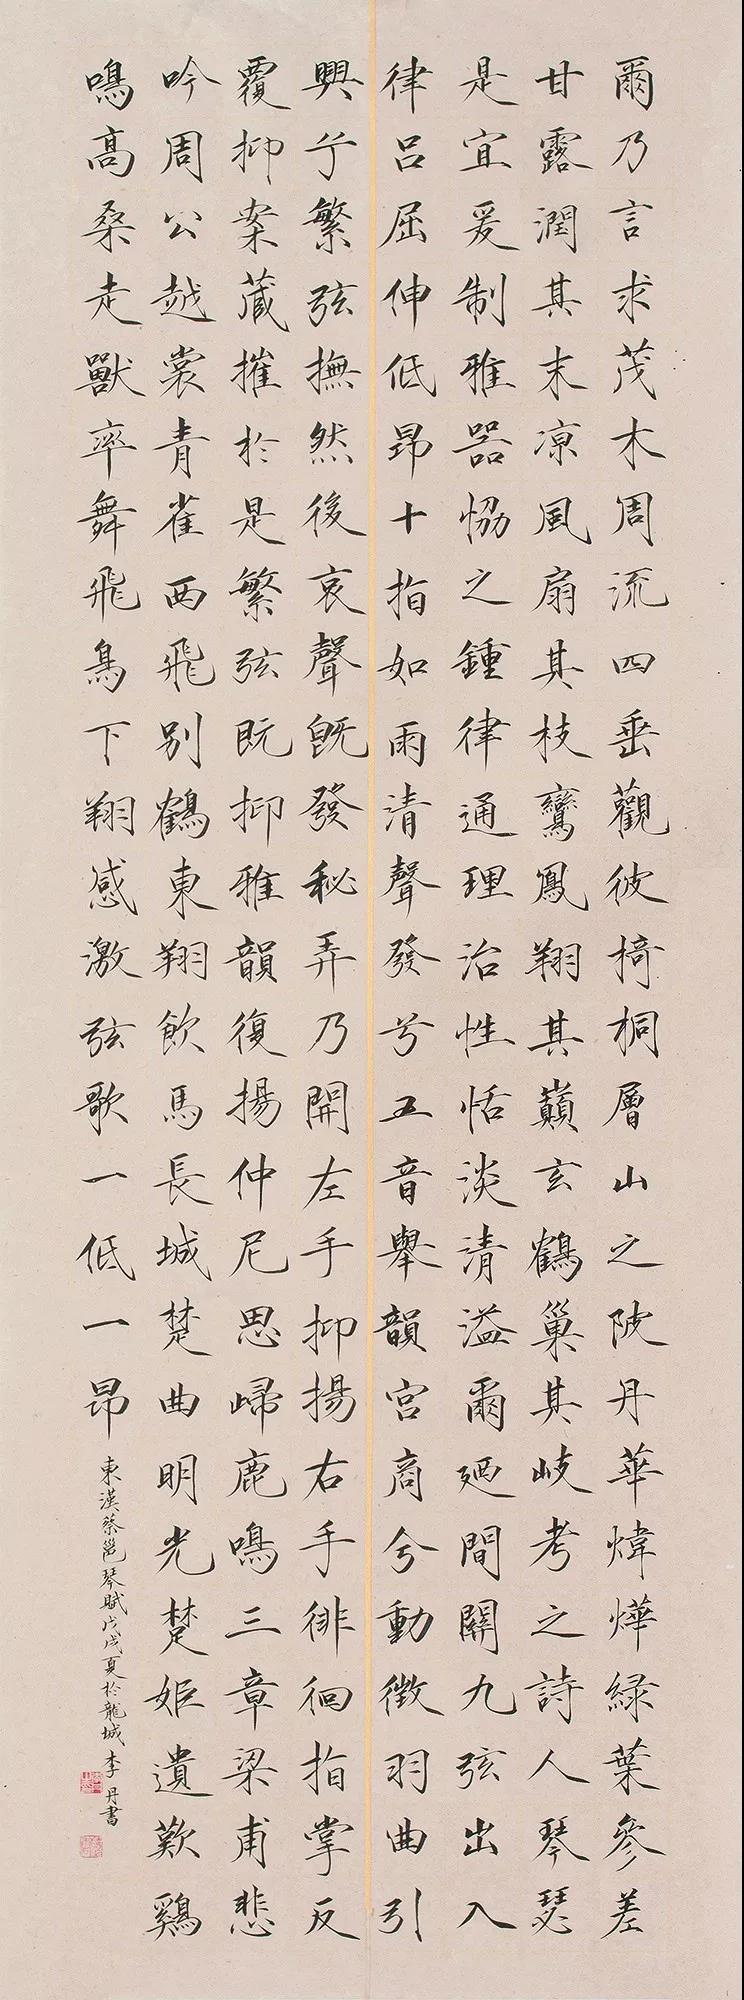 爾乃言求茂木周流四垂觀彼椅桐層山之陂丹華煒燁綠葉參差
甘露潤其末凉風扇其枝鸞鳳翔其巔玄鶴巢其岐考之詩人琴瑟
是宜爰制雅器恊之鍾律通理治性恬淡清溢爾廼間關九弦出入
律呂屈伸低昂十指如雨清聲發兮五音舉韻宮商兮動徵羽曲引
興兮繁弦撫然後哀聲旣發秘弄乃開左手抑揚右手徘徊指掌反
覆抑案藏摧於是繁弦既抑雅韻復揚仲尼思歸鹿鳴三章梁甫悲
吟周公越裳青雀西飛別鶴東翔飲馬長城楚曲明光楚姬遺歎鷄
鳴高桑走獸率舞飛鳥下翔感激弦歌一低一昂
東漢蔡邕琴賦戊戌夏於龍城李丹書